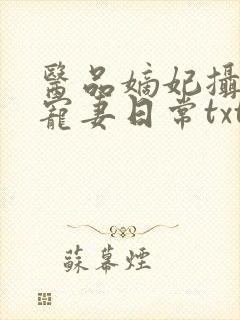 醫品嫡妃攝
寵妻日常txt
蘇幕煙